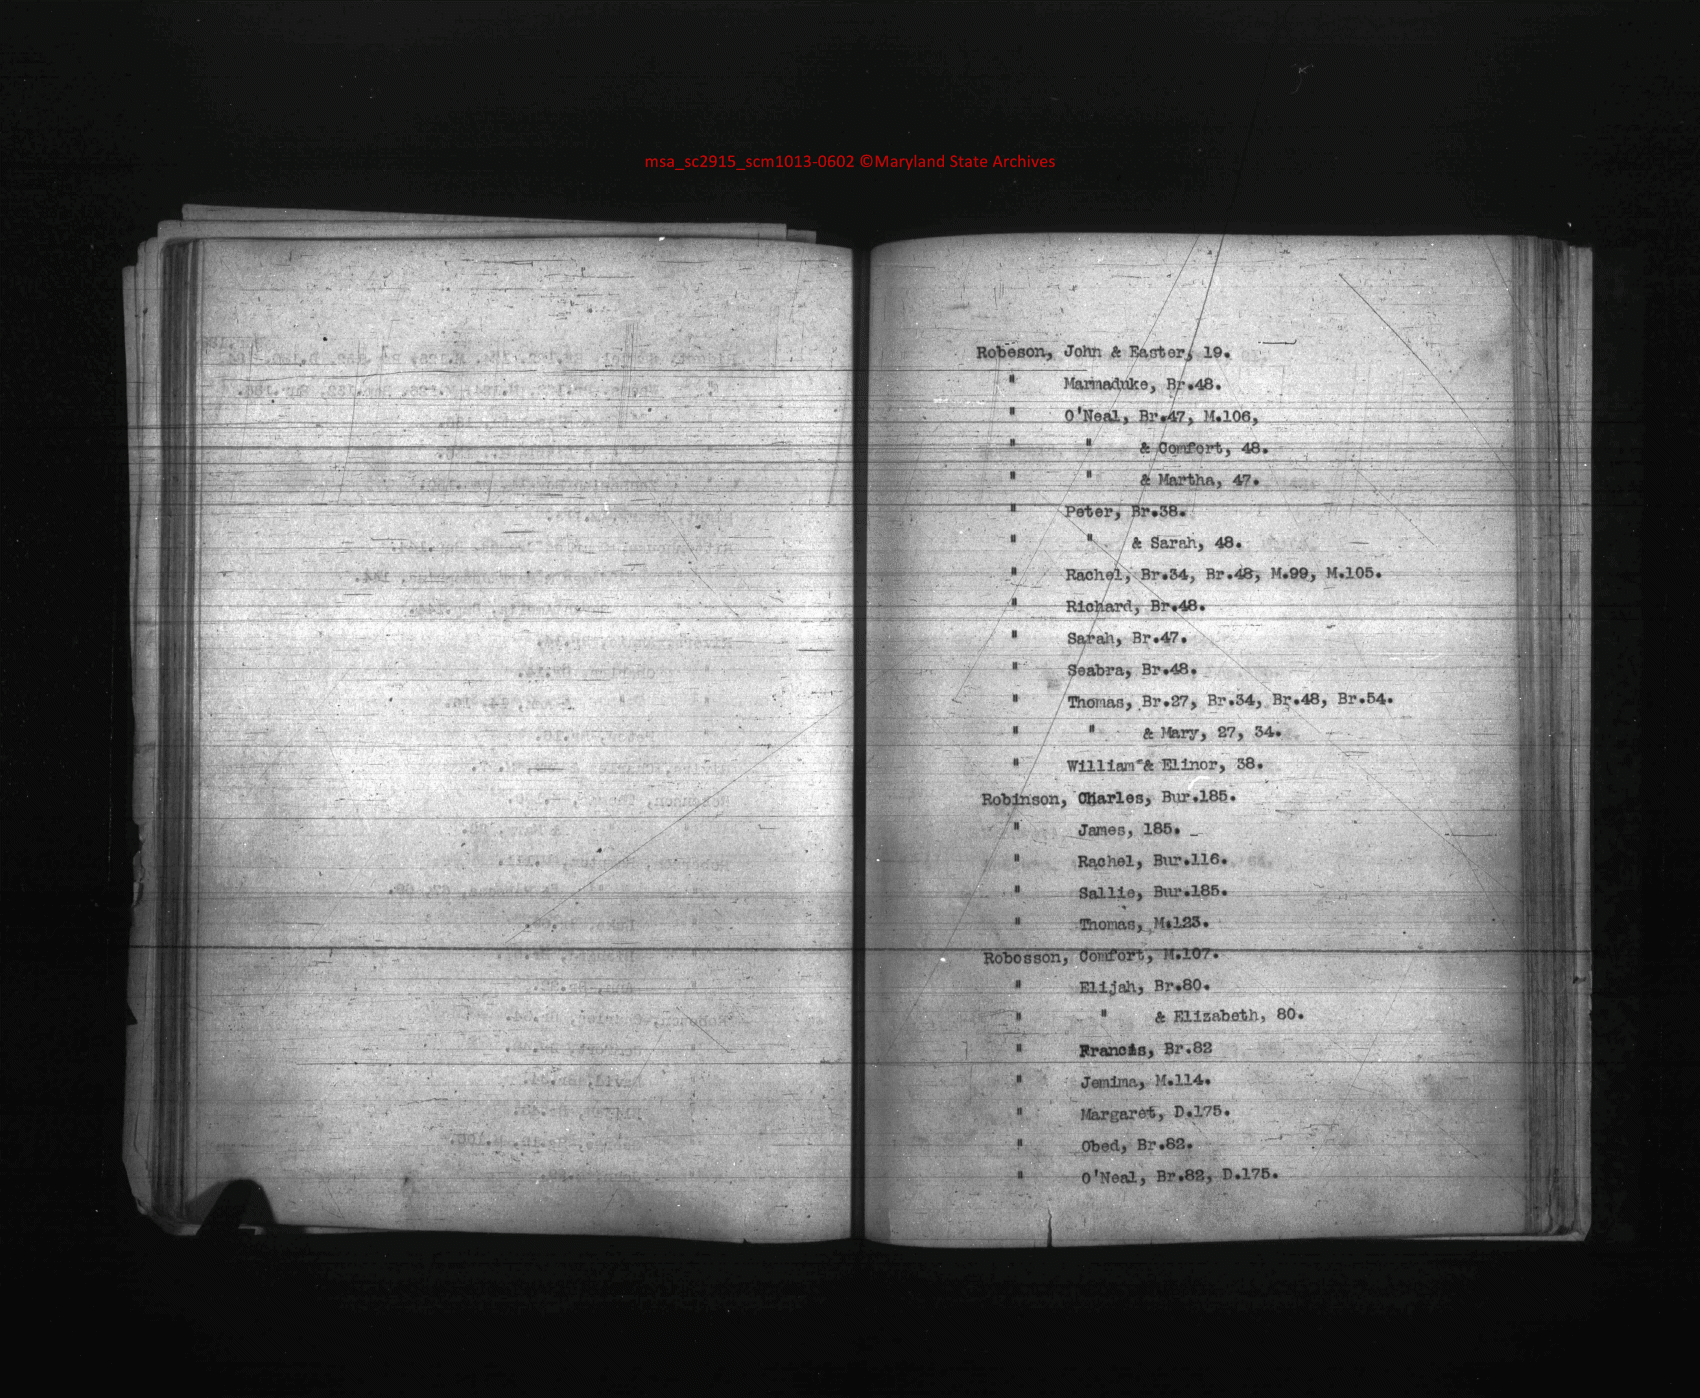 msa_sc2915_scm1013-0602 ©Maryland State Archives
Robeson, John & Easter, 19.
" Marmaduke, Br.48.
" O'Neal, Br.47, M.106,
" " & Comfort, 48.
" " & Martha, 47.
" Peter, Br.38.
" " & Sarah, 48.
" Rachel, Br.34, Br.48, M.99, M.105.
" Richard, Br.48.
" Sarah, Br.47.
" Seabra, Br.48.
" Thomas, Br.27, Br.34, Br.48, Br.54.
" " & Mary, 27, 34.
" William & Elinor, 38.
Robinson, Charles, Bur.185.
" James, 185.
" Rachel, Bur.116.
" Sallie, Bur.185.
" Thomas, M.123.
Robosson, Comfort, M.107.
" Elijah, Br.80.
" " & Elizabeth, 80.
" Francis, Br.82
" Jemima, M.114.
" Margaret, D.175.
" Obed, Br.82.
" O'Neal, Br.82, D.175.